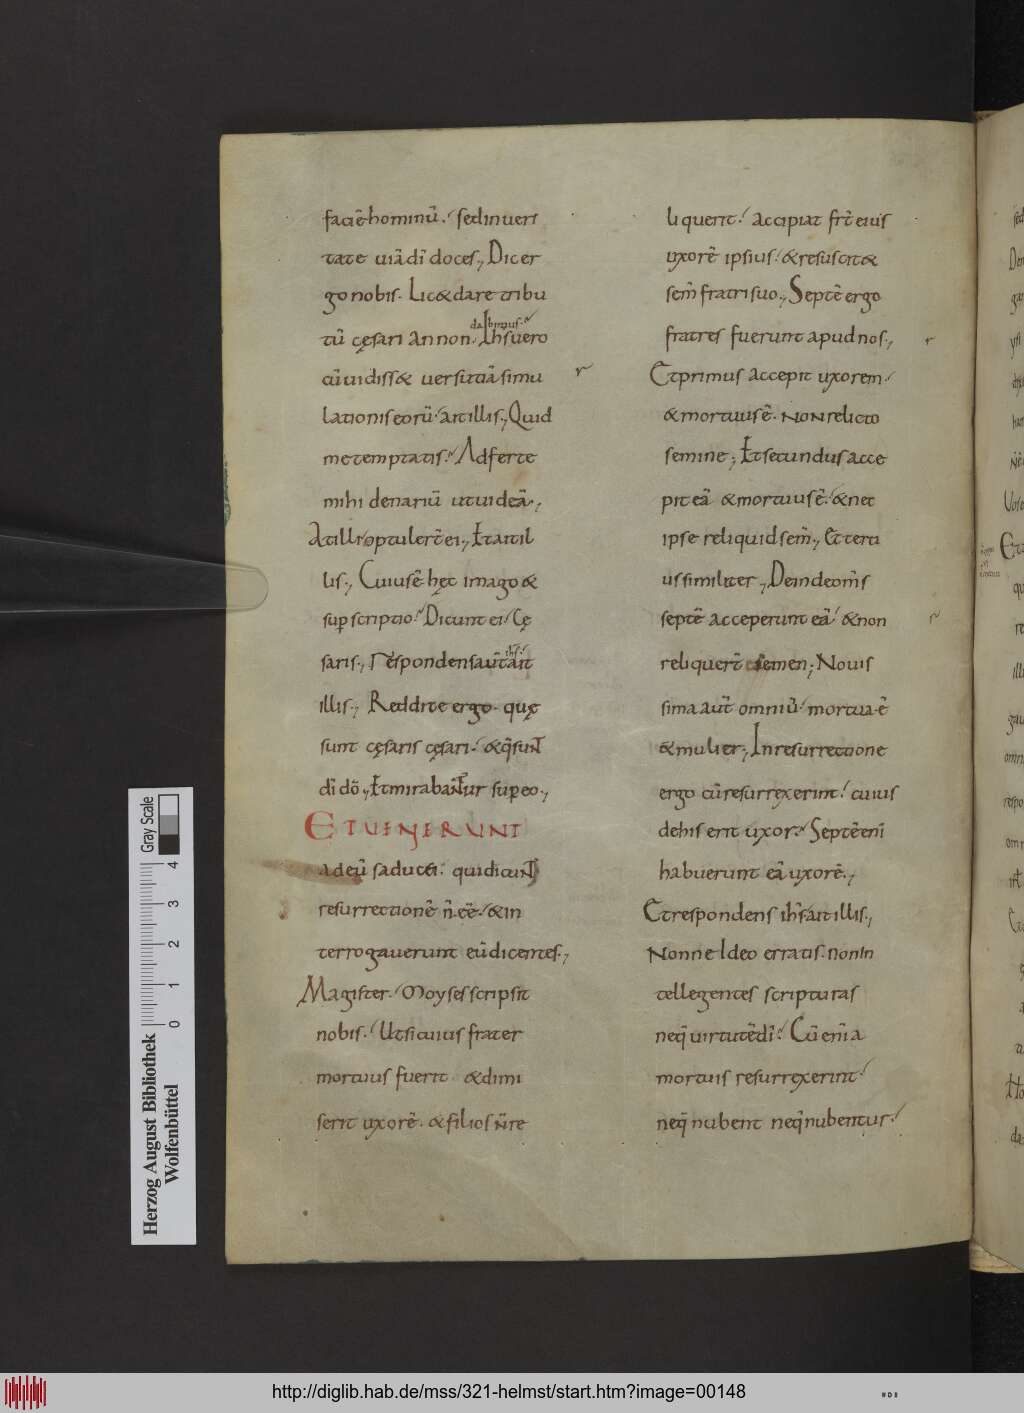 faciē hominū. sed in veri
tate uiā dī doces. Dicer
go nobis. Lic& dare tribu
dabimus
tū cęsari an non. Ihs uero
cū uidiss& uersutiā simu
lationis eorū. ait illis. Quid
me temptatis. Adferte
mihi denariū ut uideā.
At illi optulerт̄ ei. Et ait il
lis. Cuius ē hęc imago &
sup scriptio. Dicunt ei. Cę
saris. respondens aūt ihs ait
illis. Reddite ergo. quę
sunt cęsaris cęsari. & q̄ sunt
dī dō. Et mirabantur sup eo.
ET UENERUNT
ad eū saducei. qui dicunt
resurrectionē n̄ eē. & in
terrogauerunt eū dicentes.
Magister. Moyses scripsit
nobis. Ut si cuius frater
mortuus fuerit & dimi
serit uxorē. & filios n̄ re
liquerit. accipiat frт̄ eius
uxorē ipsius. & resuscit&
sem̄ fratri suo. Septē ergo
fratres fuerunt apud nos.
Et primus accepit uxorem.
& mortuus ē. non relicto
semine. Et secundus acce
pit eā & mortuus ē. & nec
ipse reliquid sem̄. Et terti
us similiter. Deinde om̄s
septē acceperunt eā. & non
reliquerт̄ semen. Nouis
sima aūt omniū. mortua ē
& mulier. In resurrectione
ergo cū resurrexerint. cuius
de his erit uxor. Septē enī
habuerunt eā uxorē.
Et respondens ihs ait illis.
Nonne Ideo erratis. non In
tellegentes scripturas
neq; uirtutē dī. Cū enī a
mortuis resurrexerint.
neq; nubent neq; nubentur.
Herzog August Bibliothek
Wolfenbüttel
0 1 2 3 4
Gray Scale
http://diglib.hab.de/mss/321-helmst/start.htm?image=00148